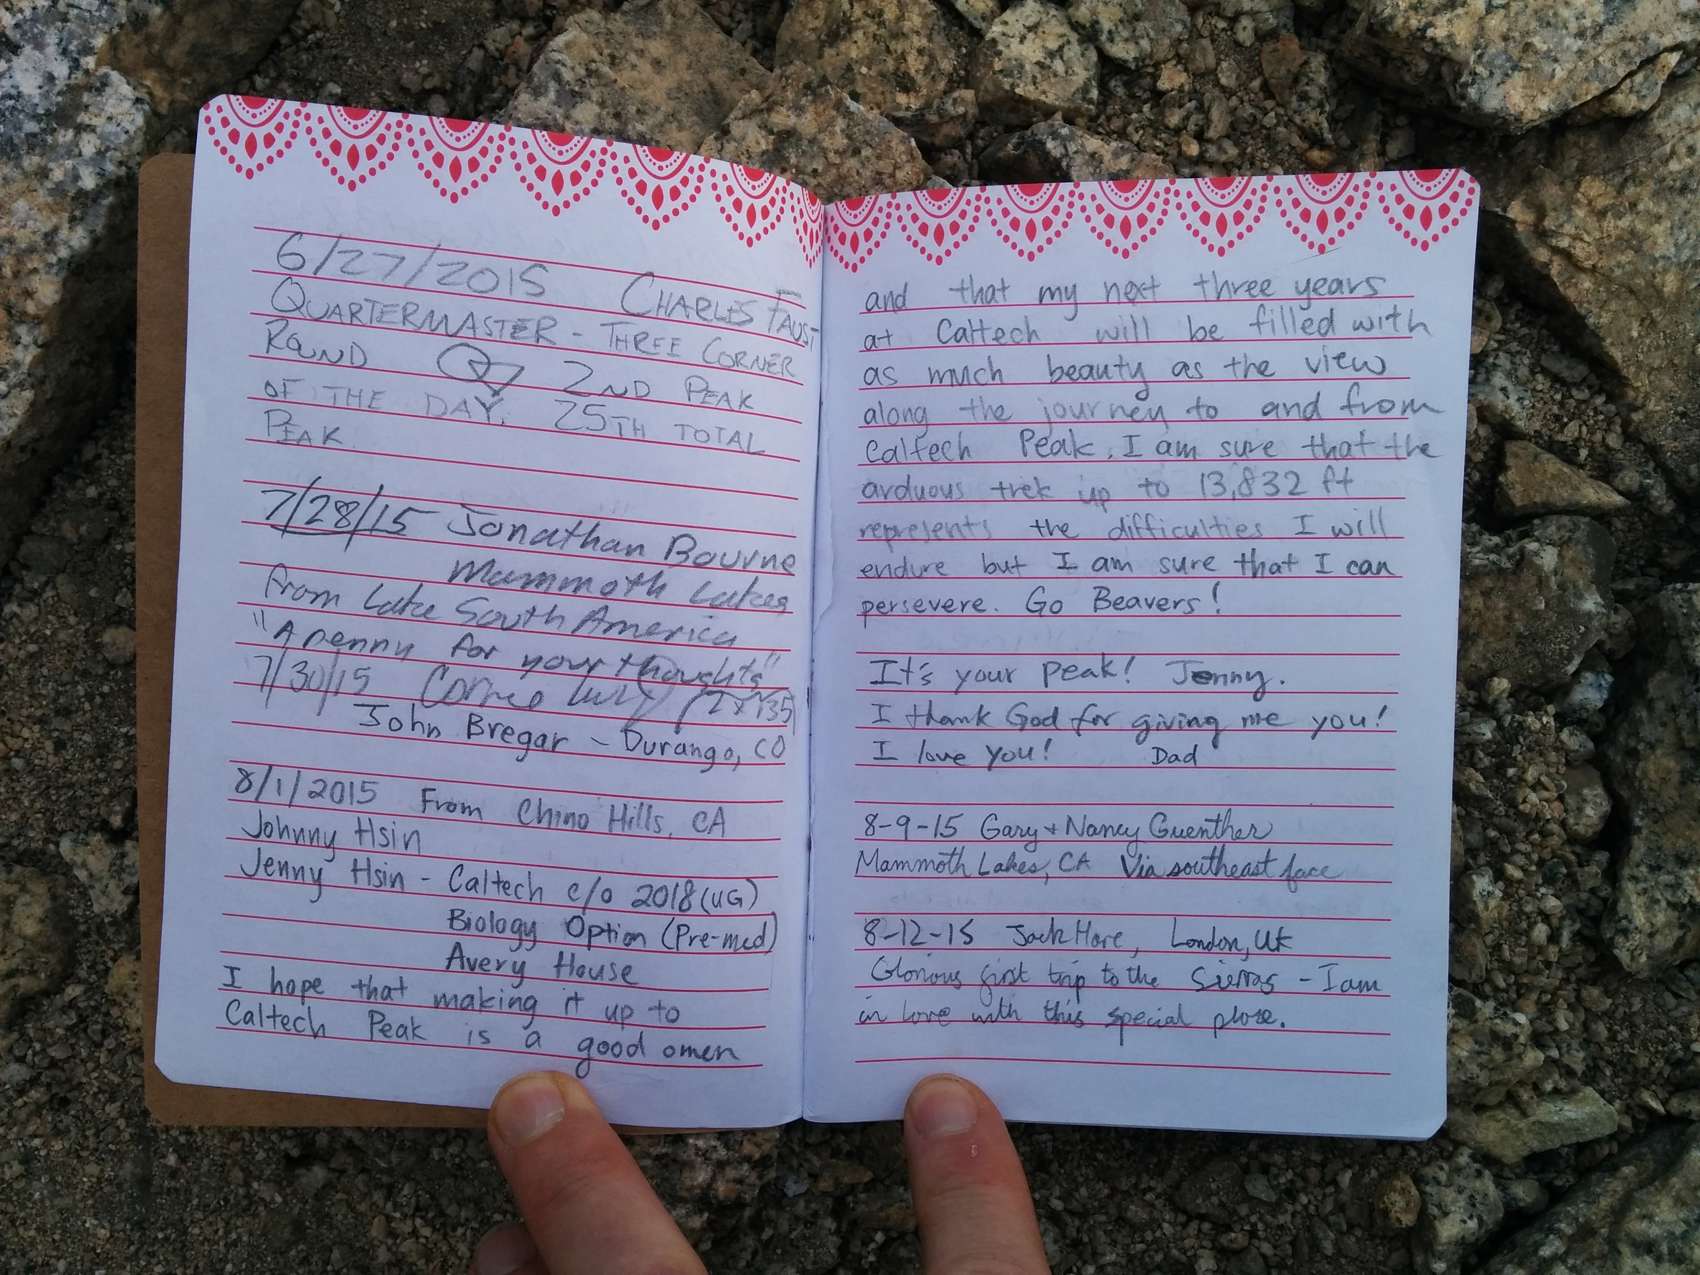 6/27/2015 CHARLES FAUST
QUARTERMASTER - THREE CORNER
ROUND 2ND PEAK
OF THE DAY. 25TH TOTAL
PEAK
7/28/15 Jonathan Bourne
Mammoth Lakes
from Lake South America
"A penny for your thoughts"
7/30/15
John Bregar - Durango, CO
8/1/2015 From Chino Hills, CA
Johnny Hsin
Jenny Hsin - Caltech c/o 2018 (UG)
Biology Option (Pre-med)
Avery House
I hope that making it up to
Caltech Peak is a good omen
and that my next three years
at Caltech will be filled with
as much beauty as the view
along the journey to and from
Caltech Peak. I am sure that the
arduous trek up to 13,832 ft
represents the difficulties I will
endure but I am sure that I can
persevere. Go Beavers!
It's your peak! Jenny.
I thank God for giving me you!
I love you! Dad
8-9-15 Gary + Nancy Guenther
Mammoth Lakes, CA Via southeast face
8-12-15 Jack Hare, London, UK
Glorious first trip to the Sierras - I am
in love with this special place.